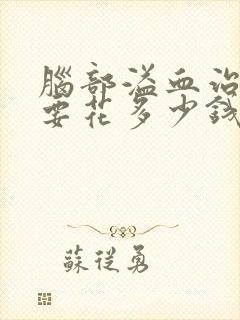 腦部溢血治
要花多少錢
蘇從勇